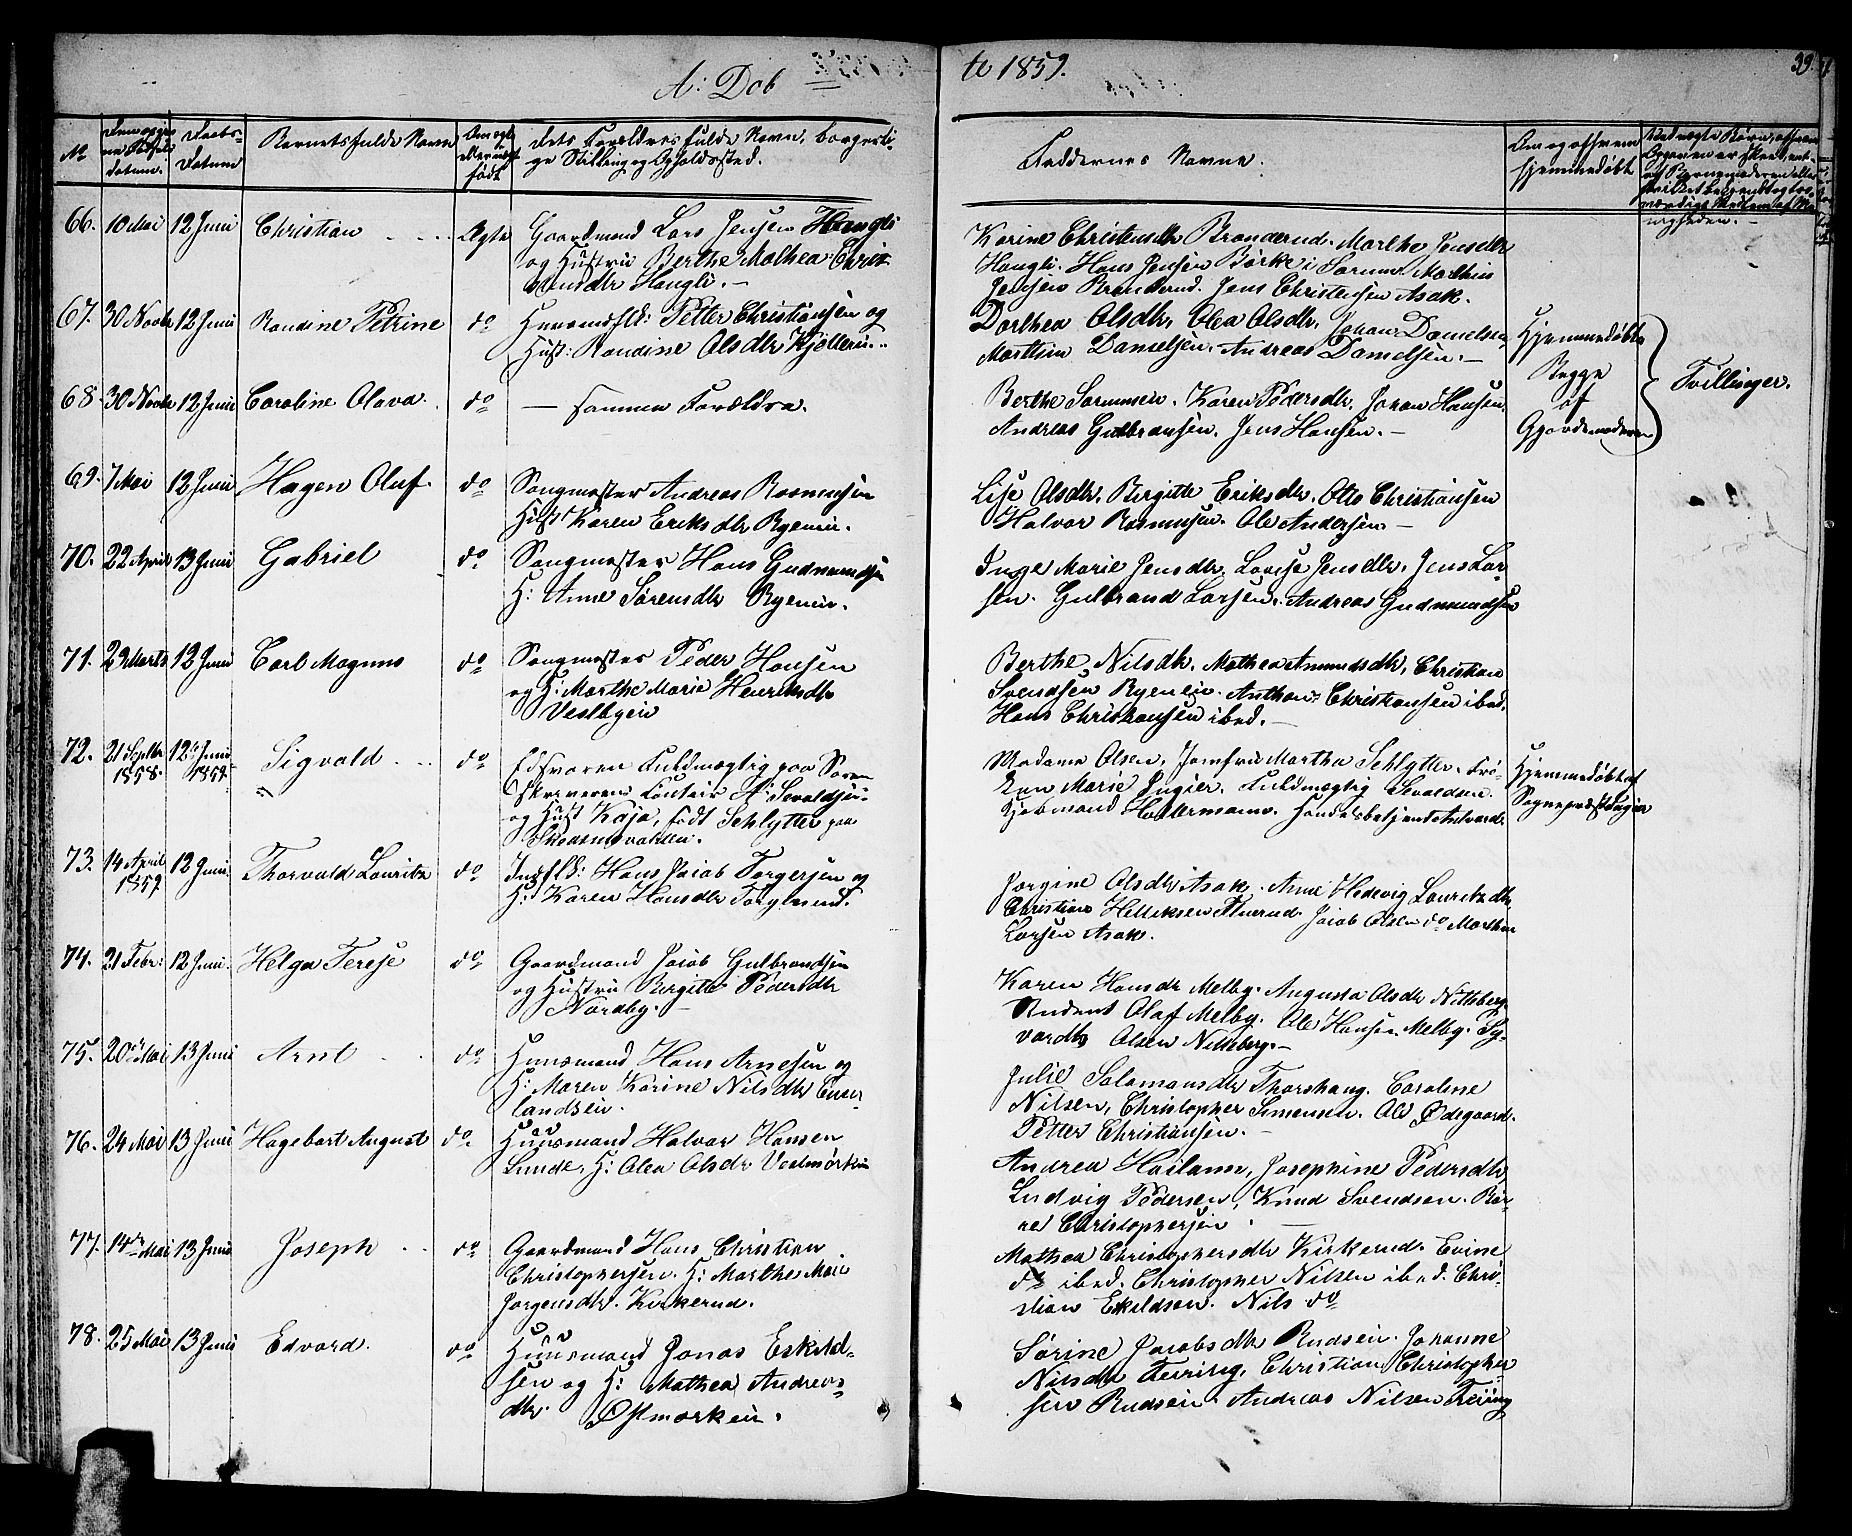 A: Døb
te 1859.
39
No
Fødsels-
datum.
Daabs-
Datum
Barnets fulde Navn
Om ægte
eller uægte
født
dets Forældres fulde Navn, borgerli-
ge Stilling og Opholdssted.
Faddernes Navne.
Om og af hvem
hjemmedøbt
66. 10 Mai 12 Juni Christian Ægte Gaardmand Lars Jensen Haugli
og Hustru Berthe Mathea Chris-
tensdtr Haugli.
Karine Christensdtr Branderud. Marthe Jensdtr
Haugli. Hans Jensen Børke i Sørum. Mathias
Jensen Branderud. Jens Christensen Asak.
67. 30 Novbr 12 Juni Randine Petrine do Petter Christiansen og
Hust: Randine Olsdtr
Dorthea Olsdtr, Olea Olsdtr, Johan Danielsen,
Danielsen. Andreas Danielsen.
Hjemmedøbte
Begge
af
Gjordemoderen
Tvillinger.
68. 30 Novbr 12 Juni Caroline Olava. do — samme Forældre.
Berthe Karen Pedersdtr, Johan Hansen,
Andreas Gulbransen. Jens Hansen.
69. 7 Mai 12 Juni Hagen Oluf. do Saugmester Andreas Rasmusen
Hust Karen Eriksdtr Ryenein.
Lise Olsdtr. Birgitte Eriksdtr. Otto Christiansen
Halvor Rasmusen. Ole Andersen
70. 22 April 13 Juni Gabriel do Saugmester Hans Gudmundsen
H: Anne Sørensdtr Ryenein.
Inge Marie Jensdtr. Lovise Jensdtr. Jens Lar-
sen. Gulbrand Larsen. Andreas Gudmundsen
71. 29 Marts 12 Juni Carl Magnus do Saugmester Peder Hansen
og H: Marthe Marie Henriksdtr
Vestbyein
Berthe Nilsdtr. Mathea Amundsdtr, Christian
Svendsen Ryenein. Anthon Christiansen ibed.
Hans Christiansen ibed.
72. 21 Septbr
1858. 12te Juni
1859. Sigvald do Edsvoren Fuldmægtig paa Soren
skriveren Contoir A: Sevaldsen
og Hust Kaja, født Schlytter paa
Skedsmovolden.
Madame Olsen, Jomfru Marthe Schlytter. Frø-
ken Marie Ingier. Fuldmægtig Sevaldsen.
Kjøbmand Handelsbetjent
Hjemmedøbt af
Sognepræst Ingier
73. 14 April
1859 12 Juni. Thorvald Lauritz do Hans Jacob Torgersen og
H: Karen Hansdtr
Jorgine Olsdtr Asak. Anne Hedevig Lauritzdtr
Christian Jacob Olsen do Marthin
Larsen Asak.
74. 21 Febr: 12 Juni. Helga Terese do, Gaardmand Jacob Gulbrandsen
og Hustru Birgitte Pedersdtr
Nordby.
Karen Hansdtr Melby. Augusta Olsdtr Nitteberg
Student Olaf Melby. Ole Hansen Melby. Sy-
vardt Olsen Nitteberg.
75. 20de Mai 13 Juni Arnt do, Huusmand Hans Arnesen og
H: Maren Karine Nilsdtr
Julie Salamonsdtr Thorshaug. Caroline
Nilsen, Christopher Simensen. Ole Ødegaard.
Petter Christiansen.
76. 24 Mai 13 Juni Hagebart August do. Huusmand Halvor Hansen
Lunde, H: Olea Olsdtr
Andrea Josephine Pedersdtr,
Ludvig Pedersen, Knud Svendsen.
Christophersen.
77. 14de Mai 13 Juni Joseph do Gaardmand Hans Christian
Christophersen. H: Marthe Marie
Jorgensdtr. Kirkerud.
Mathea Christophersdtr Kirkerud. Evine
do ibed. Christopher Nilsen ibed. Chri-
stian Eskildsen. Nils do
78. 25 Mai 13 Juni Edvard. do Huusmand Jonas Eskild-
sen og H: Mathea Andreas-
dtr. Østmorkein.
Sørine Jacobsdtr Rudsein. Johanne
Nilsdtr Christian Christopher
sen Rudsein. Andreas Nilsen